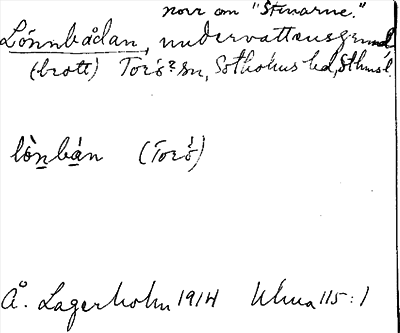 norr om "Stenarne."
Lönnbådan, undervattensgrund
(brott) Torö? sn, Sotholms hd, Sthms l.
lònbán (Torö)
Å. Lagerholm 1914 Uhua 115:1